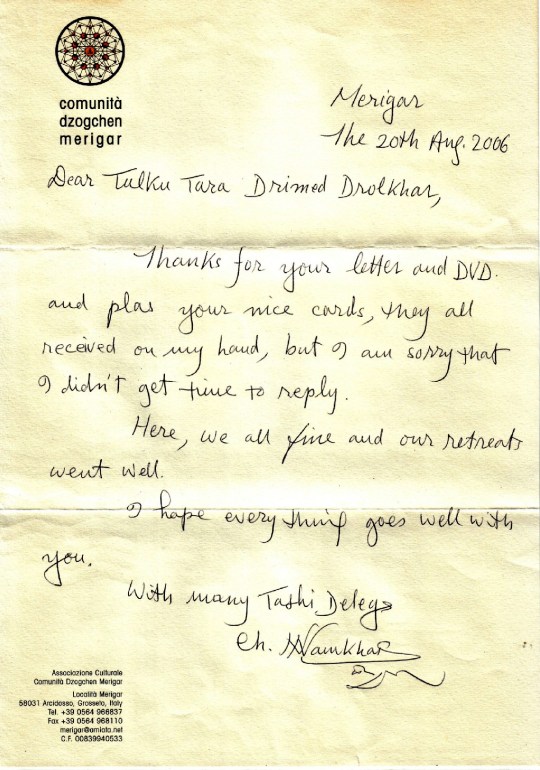 comunità
dzogchen
merigar
Merigar
The 20th Aug. 2006
Dear Tulku Tara Drimed Drolkhar,
Thanks for your letter and DVD.
and plas your nice cards, they all
received on my hand, but I am sorry that
I didn't get time to reply.
Here, we all fine and our retreats
went well.
I hope everything goes well with
you.
With many Tashi Delegs
Ch. N Namkhai
Associazione Culturale
Comunità Dzogchen Merigar
Località Merigar
58031 Arcidosso, Grosseto, Italy
Tel. +39 0564 966837
Fax +39 0564 968110
merigar@amiata.net
C.F. 00839940533